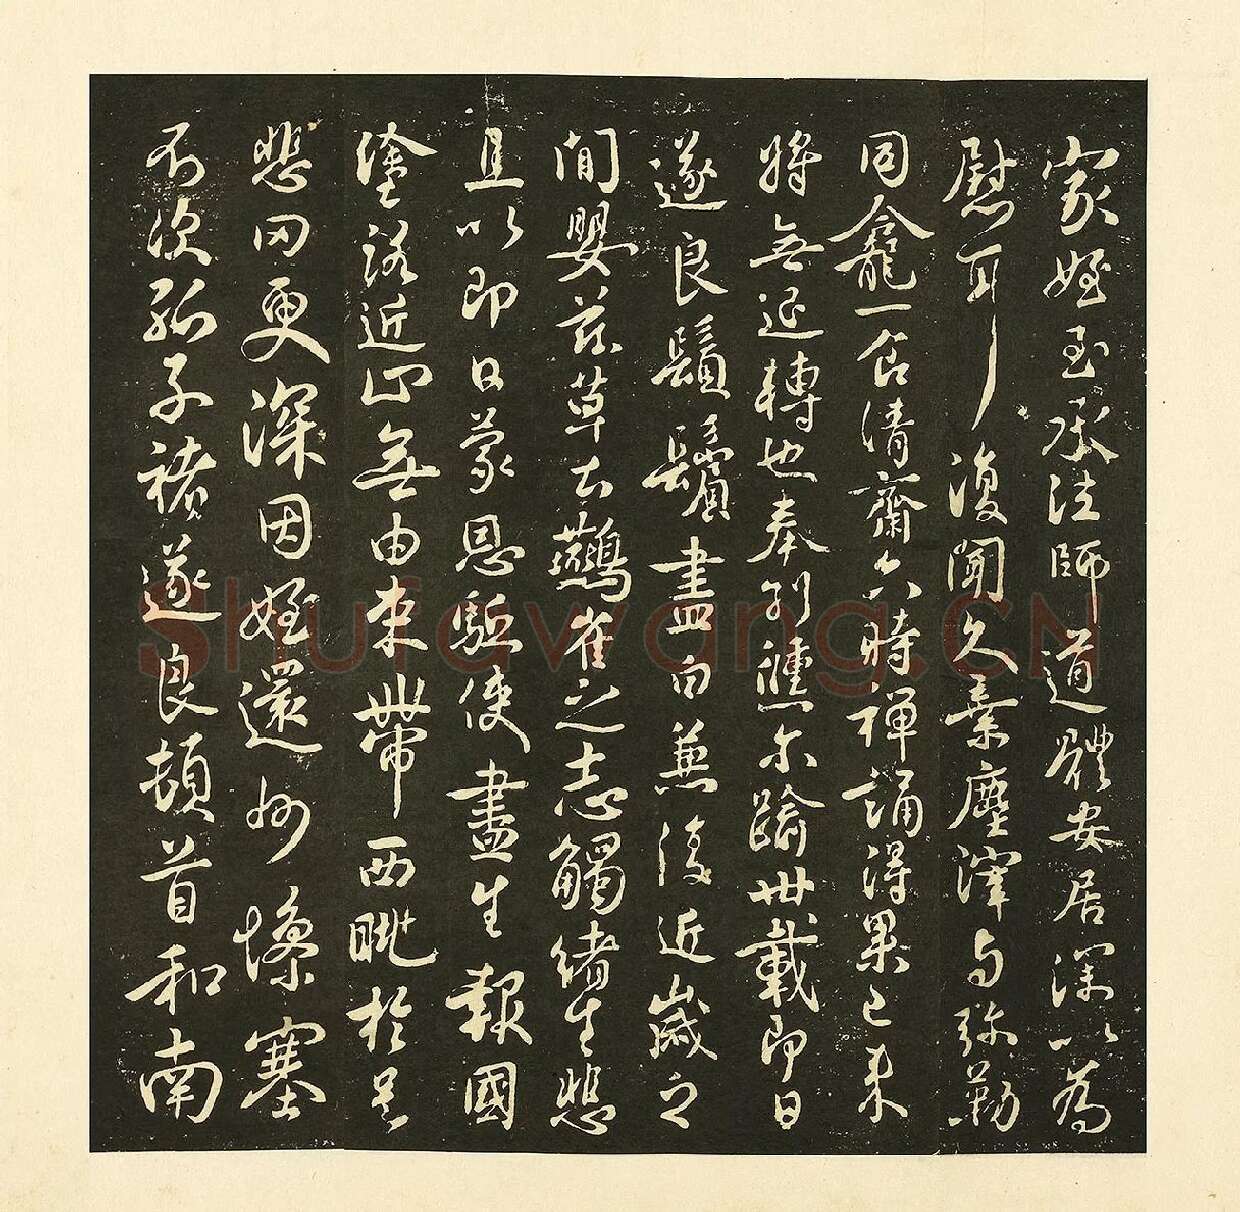 家姪至承法師道體安居深以為
慰耳復聞久棄塵滓与弥勒
同龕一食清齋六時禪誦得果已來
將無退轉也奉別倏尓踰卌載即日
遂良鬚鬢盡白兼復近歲之
間嬰茲草土鷰雀之志觸緒生悲
且以即日蒙恩驅使盡生報國
塗路近止無由束帶西眺於邑
悲罔更深因姪還州憀塞
不次孤子褚遂良頓首和南
Shufawang.CN